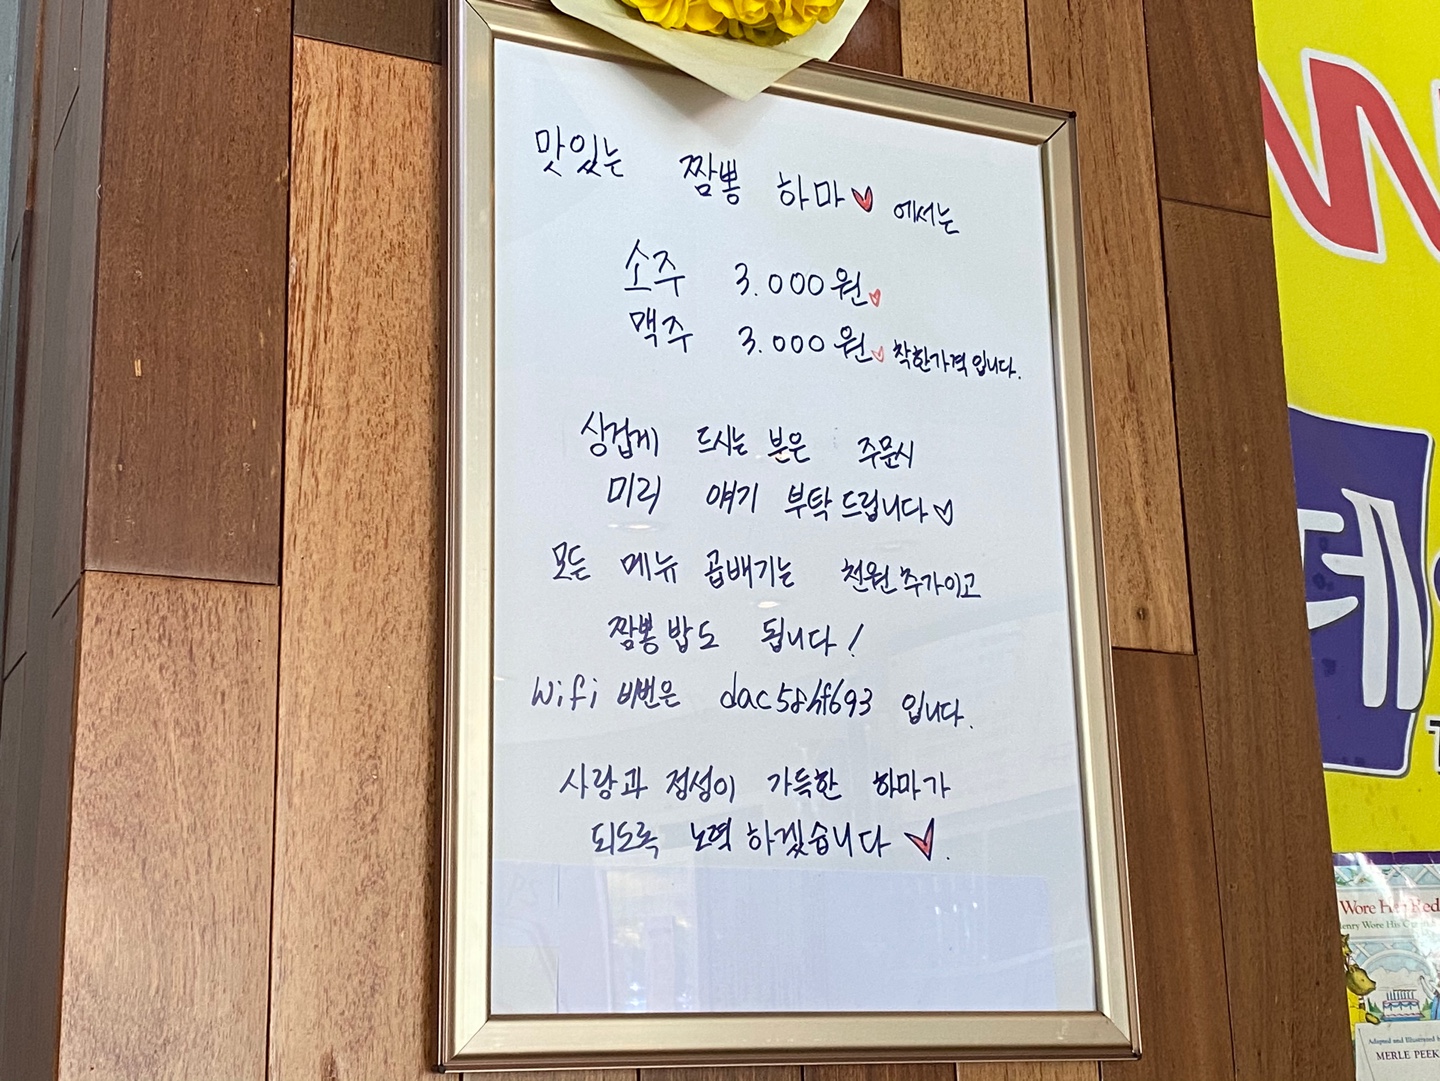 맛있는 짬뽕 하마♥ 에서는
소주 3.000원♥
맥주 3.000원♥ 착한가격입니다.
싱겁게 드시는 분은 주문시
미리 얘기 부탁드립니다♡
모든 메뉴 곱배기는 천원추가이고
짬뽕밥도 됩니다!
Wifi 비번은 입니다.
사랑과 정성이 가득한 하마가
되도록 노력하겠습니다♥.
Wore Her Red
Henry Wore His
Adapted and Illustrated
MERLE PEEK